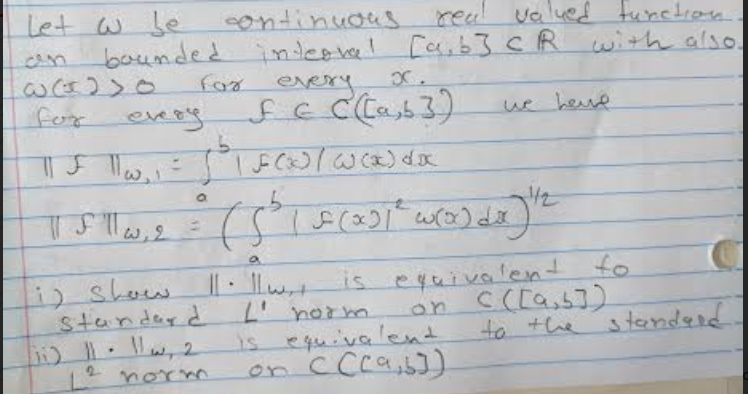 Let ω be continuous real valued function
on bounded interval [a,b] ⊂ R with also
ω(x) > 0 for every x.
for every f ∈ C([a,b]) we have
‖f‖ω,1 = ∫ₐᵇ |f(x)| ω(x) dx
‖f‖ω,2 = (∫ₐᵇ |f(x)|² ω(x) dx)^1/2
i) Show ‖·‖ω,1 is equivalent to
standard L' norm on C([a,b])
ii) ‖·‖ω,2 is equivalent to the standard
L² norm on C([a,b])